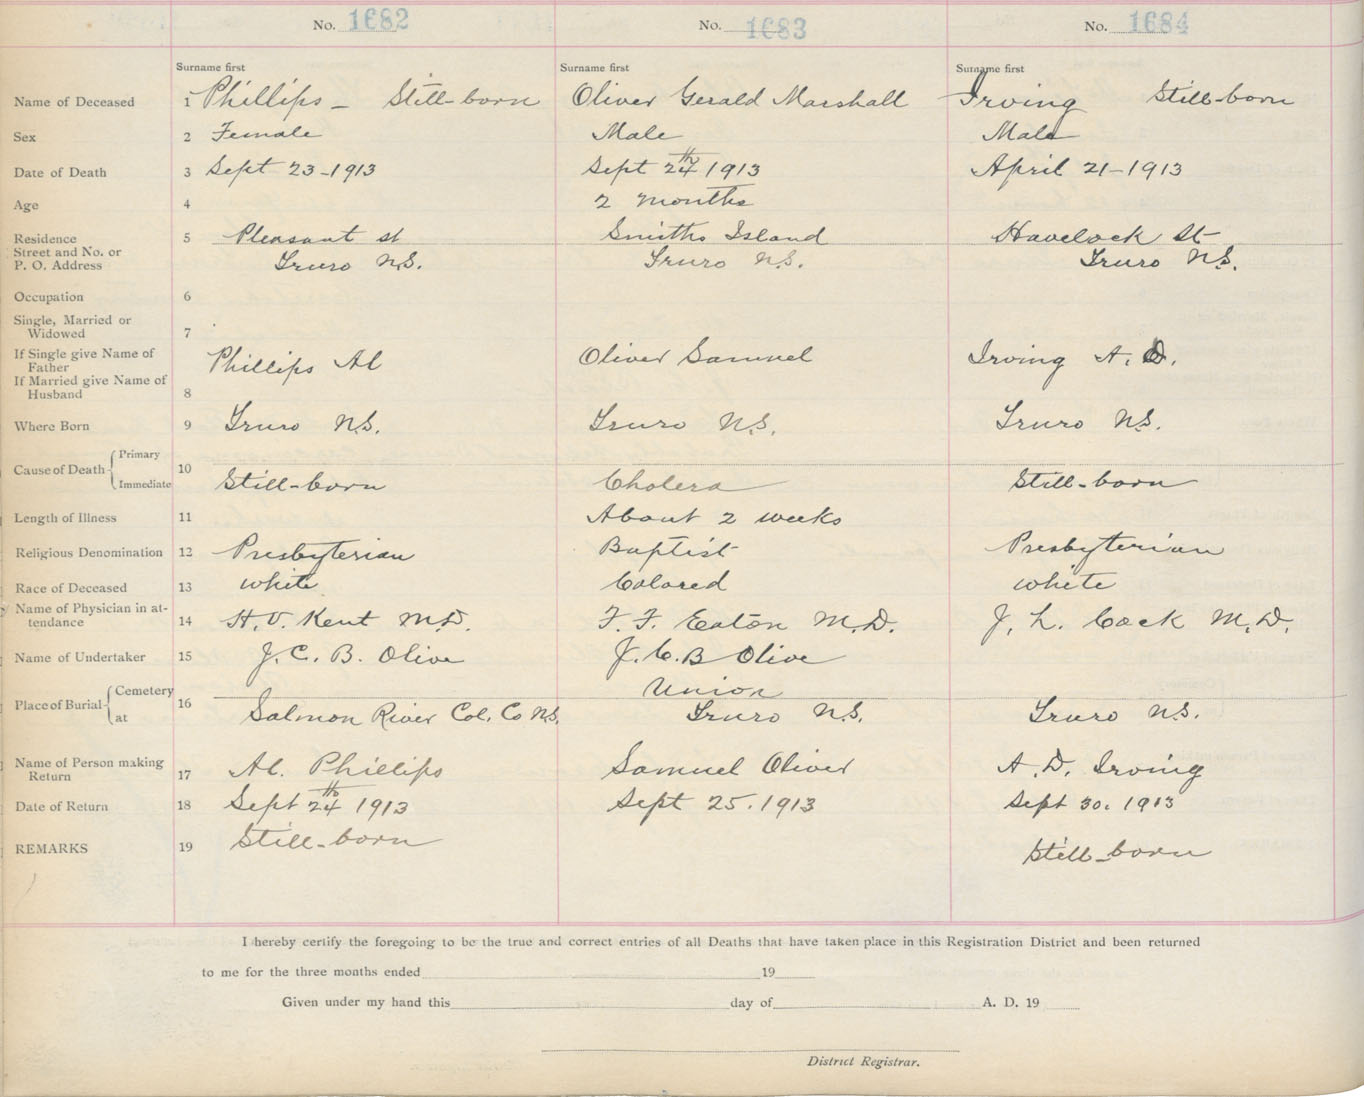 No. 1682 No. 1683 No. 1684
Surname first Surname first Surname first
Name of Deceased 1 Phillips - Still-born Oliver Gerald Marshall Irving Still-born
Sex 2 Female Male Male
Date of Death 3 Sept 23-1913 Sept 24th 1913 April 21-1913
Age 4 2 months
Residence 5 Pleasant st Smiths Island Havelock St
Street and No. or
P. O. Address Truro N.S. Truro N.S. Truro N.S.
Occupation 6
Single, Married or
Widowed 7
If Single give Name of
Father Phillips Al Oliver Samuel Irving A. D.
If Married give Name of
Husband 8
Where Born 9 Truro N.S. Truro N.S. Truro N.S.
Cause of Death Primary 10
Immediate Still-born Cholera Still-born
Length of Illness 11 About 2 weeks
Religious Denomination 12 Presbyterian Baptist Presbyterian
Race of Deceased 13 white Colored white
Name of Physician in at-
tendance 14 H. V. Kent M.D. F. F. Eaton M.D. J. L. Cock M.D.
Name of Undertaker 15 J. C. B. Olive J. C. B Olive
Place of Burial Cemetery 16 Union
at Salmon River Col. Co N.S. Truro N.S. Truro N.S.
Name of Person making
Return 17 Al. Phillips Samuel Oliver A. D. Irving
Date of Return 18 Sept 24th 1913 Sept 25. 1913 Sept 30. 1913
REMARKS 19 Still-born Still-born
I hereby certify the foregoing to be the true and correct entries of all Deaths that have taken place in this Registration District and been returned
to me for the three months ended 19
Given under my hand this day of A. D. 19
District Registrar.